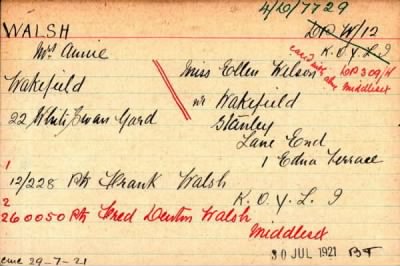 4/D/7729
WALSH
DP W/12
K.O.Y.L.I
Mrs Annie
card with also DP 309/H
Middlesex
Wakefield
Miss Ellen Wilson
nr Wakefield
22 White Swan Yard
Stanley
Lane End
1 Edna Terrace
1
12/228 Pte Frank Walsh
K.O.Y.L.I
2
260050 Pte Fred Denton Walsh
Middlesex
30 JUL 1921 BT
29-7-21